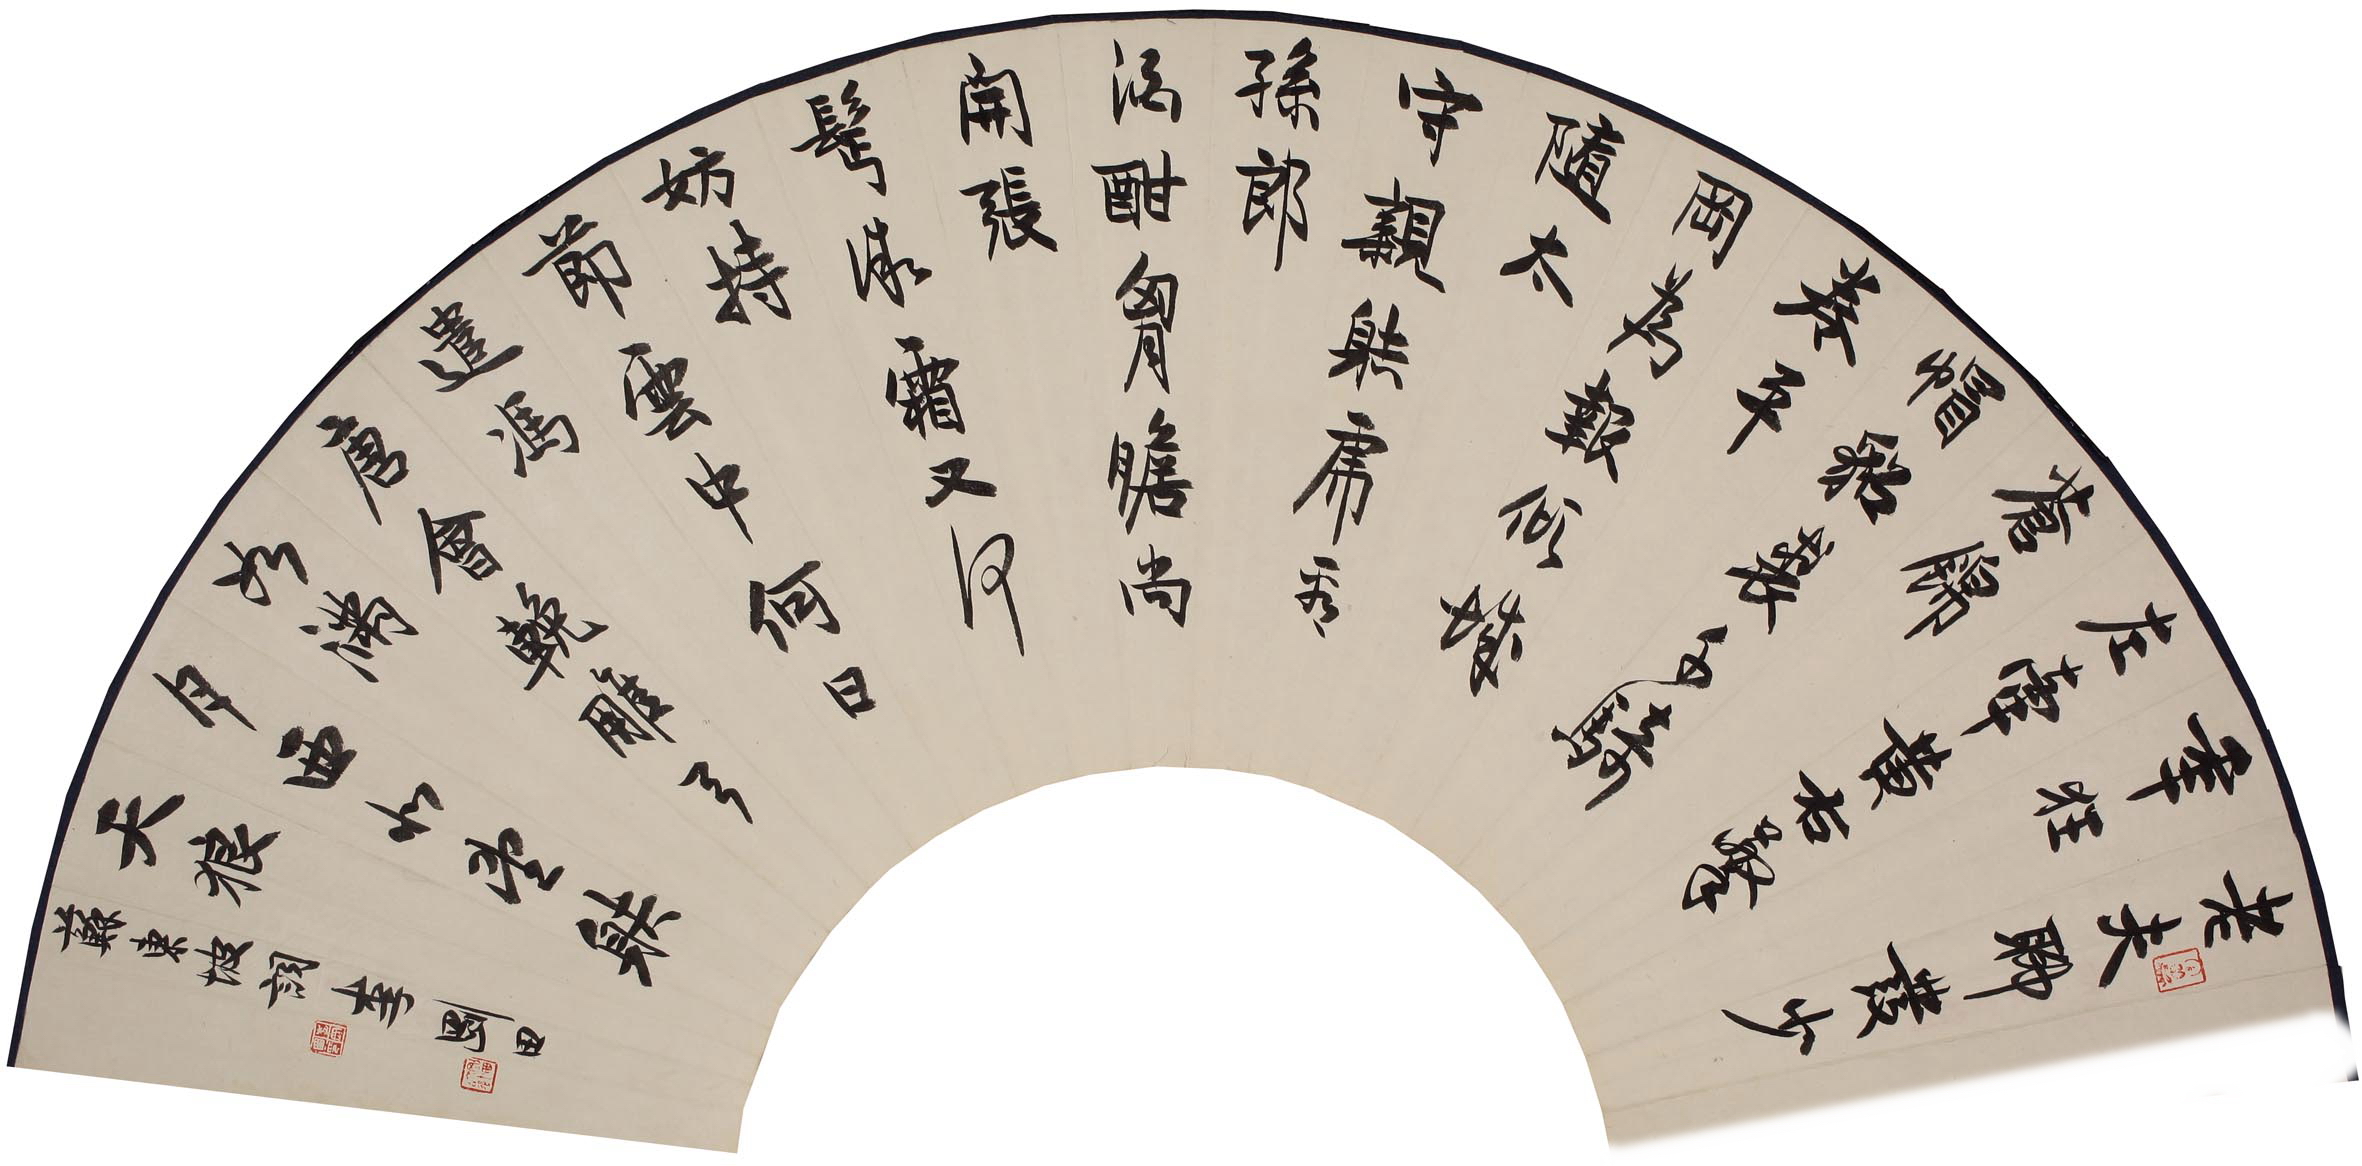 老夫聊發少
年狂
左牽黃右擎
蒼錦
帽貂裘千騎
卷平
岡為報傾城
随太
守親射虎看
孫郎
酒酣胷膽尚
開張
鬢微霜又何
妨持
節雲中何日
遣馮
唐會輓雕弓
如滿
月西北望射
天狼
蘇東坡詞 李剛田